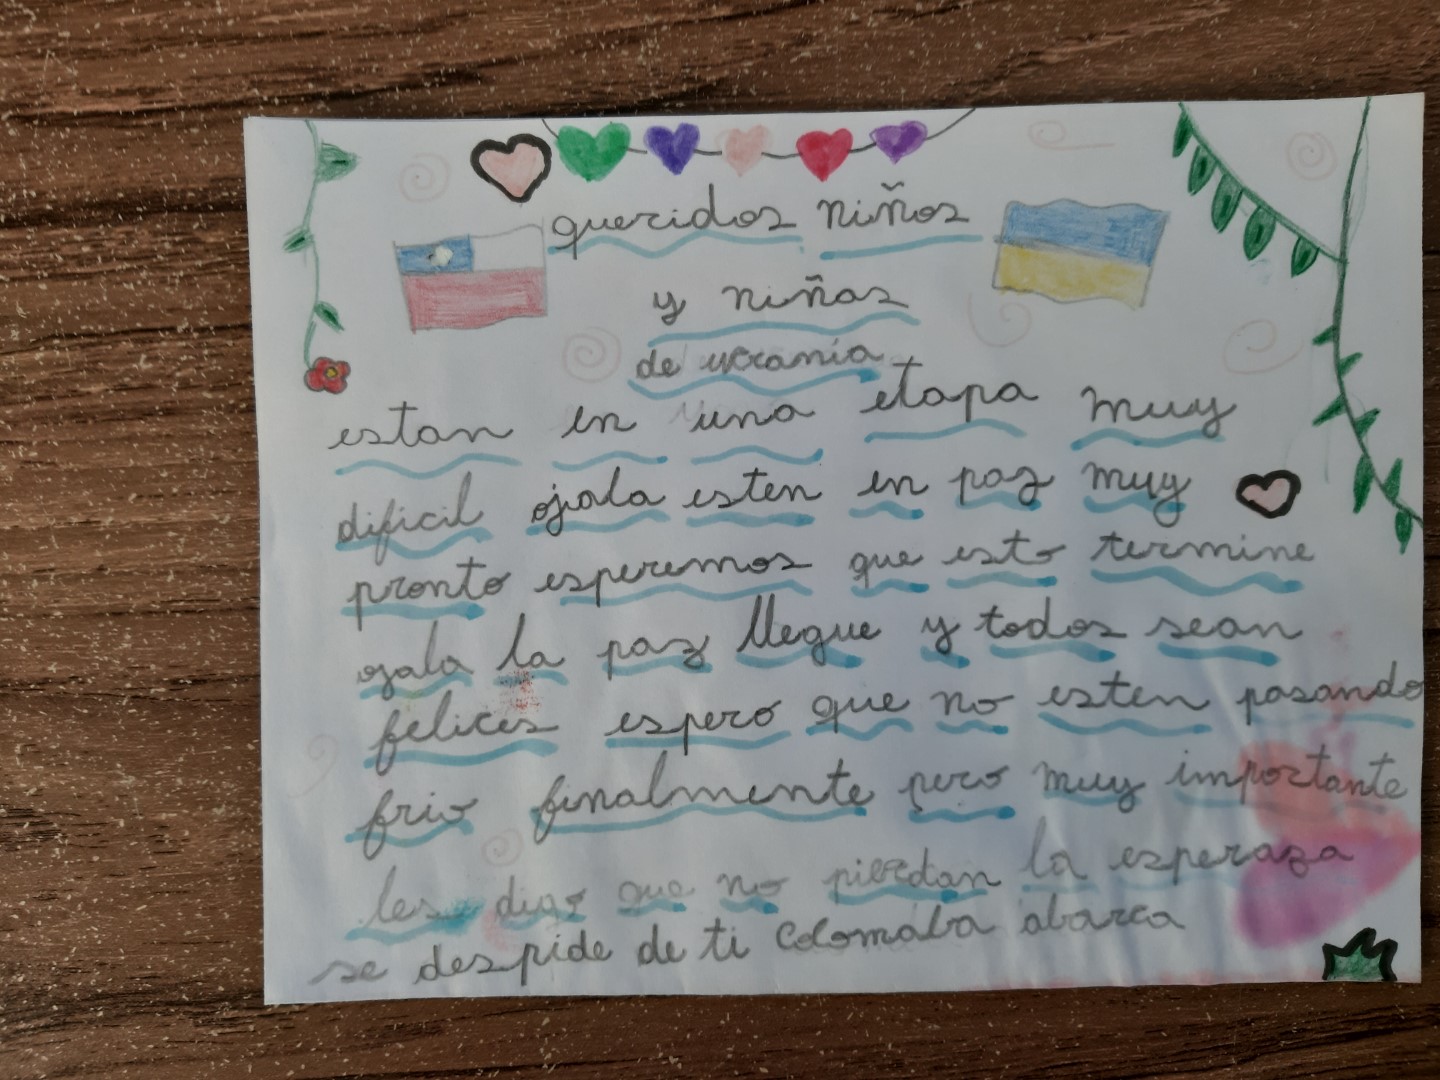 queridos niños
y niñas
de ucrania
estan en una etapa muy
dificil ojala esten en paz muy
pronto esperemos que esto termine
ojala la paz llegue y todos sean
felices espero que no esten pasando
frio finalmente pero muy importante
les digo que no pierdan la esperaza
se despide de ti Colomaba abarca